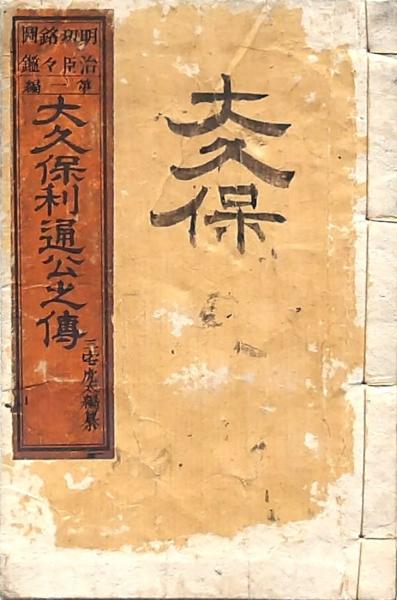 大久保
明治
功臣
銘々
圖鑑
第二編
大久保利通公之傳
三宅虎太編纂